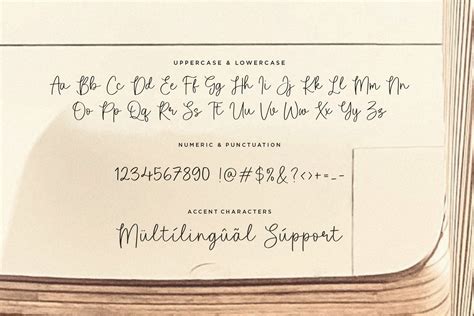 UPPERCASE & LOWERCASE
Aa Bb Cc Dd Ee Ff Gg Hh Ii Jj Kk Ll Mm Nn
Oo Pp Qq Rr Ss Tt Uu Vv Ww Xx Yy Zz
NUMERIC & PUNCTUATION
1234567890 !@#$%&?<>+=_-
ACCENT CHARACTERS
Mültílingúãl Súpport